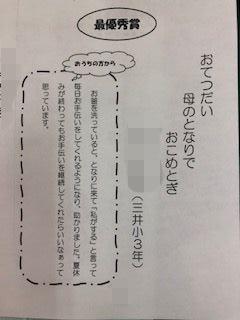 最優秀賞
おてつだい
母のとなりで
おこめとぎ
（三井小３年）
おうちの方から
お釜を洗っていると、となりに来て「私がする」と言って
毎日お手伝いをしてくれるようになり、助かりました。夏休
みが終わってもお手伝いを継続してくれたらいいなぁって
思っています。